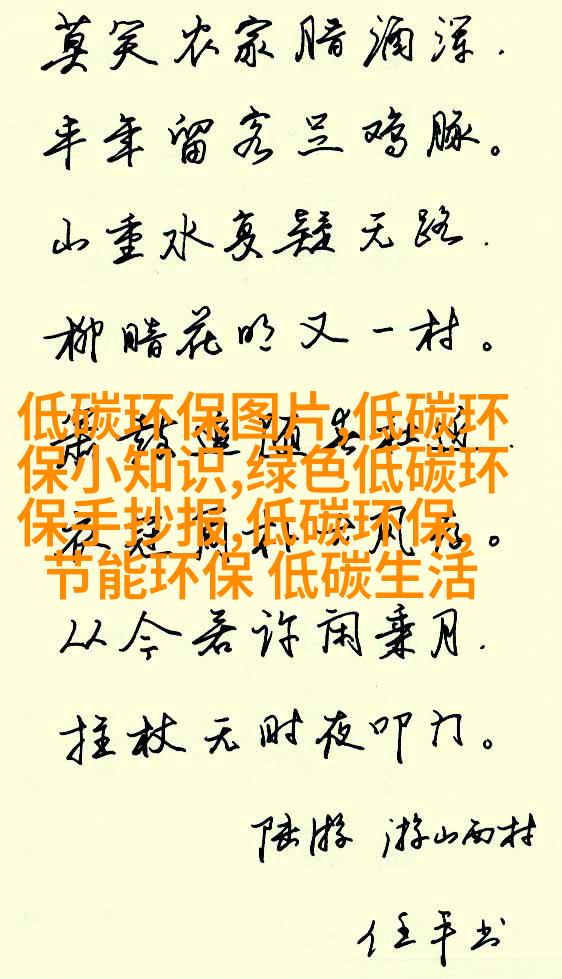 莫笑农家腊酒浑.
丰年留客足鸡豚。
山重水复疑无路.
柳暗花明又一村。
低碳环保图片,低碳环
保小知识,绿色低碳环
保手抄报,低碳环保,
节能环保 低碳生活
从今若许闲乘月.
拄杖无时夜叩门。
陆游 游山西村
任平书